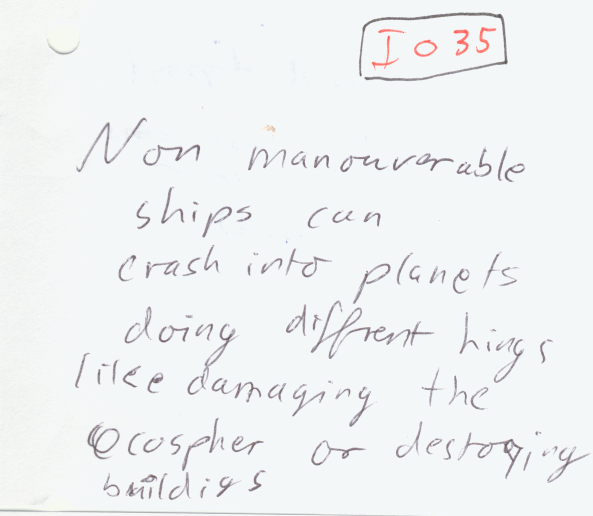 I O 35
Non manouverable
ships can
crash into planets
doing diffrent hings
like damaging the
ecospher or destoying
buildigs